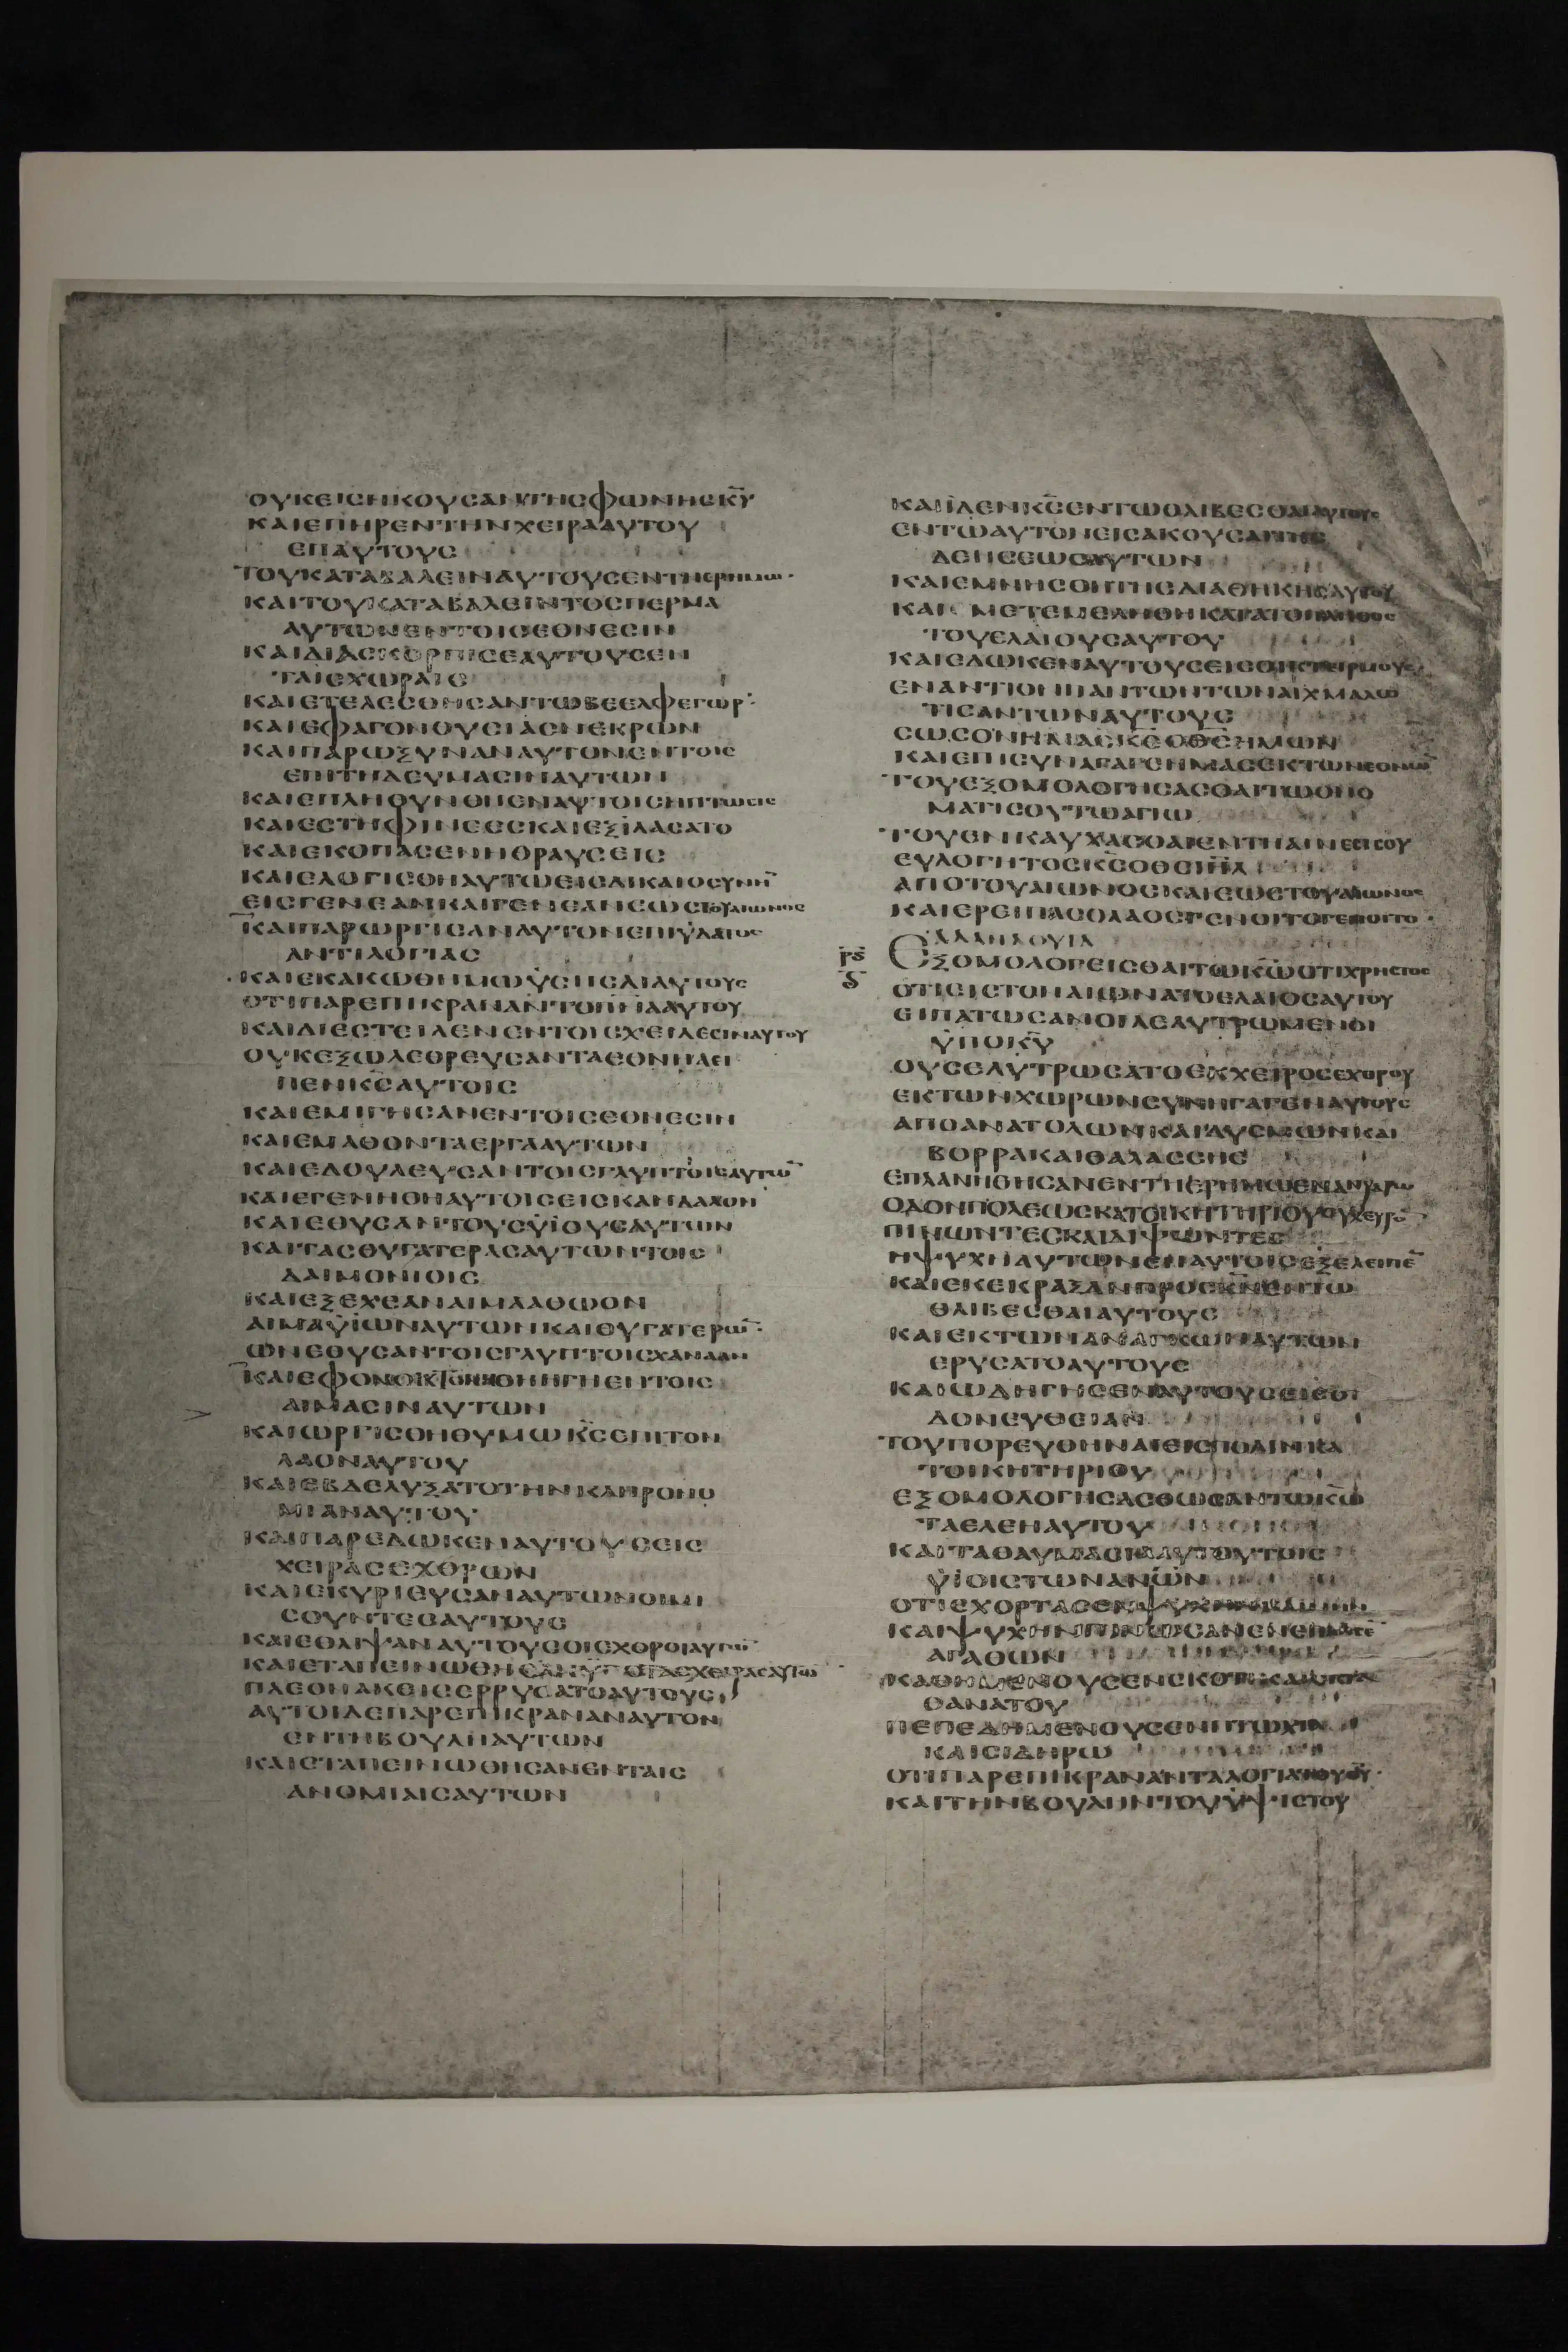 ΟΥΚΕΙΣΗΚΟΥΣΑΝΤΗΣΦΩΝΗΣΚ̅Υ̅
ΚΑΙΕΠΗΡΕΝΤΗΝΧΕΙΡΑΑΥΤΟΥ
ΕΠΑΥΤΟΥΣ
ΤΟΥΚΑΤΑΒΑΛΕΙΝΑΥΤΟΥΣΕΝΤΗΕΡΗΜΩ·
ΚΑΙΤΟΥΚΑΤΑΒΑΛΕΙΝΤΟΣΠΕΡΜΑ
ΑΥΤΩΝΕΝΤΟΙΣΕΘΝΕΣΙΝ
ΚΑΙΔΙΑΣΚΟΡΠΙΣΕΑΥΤΟΥΣΕΝ
ΤΑΙΣΧΩΡΑΙΣ
ΚΑΙΕΤΕΛΕΣΘΗΣΑΝΤΩΒΕΕΛΦΕΓΩΡ·
ΚΑΙΕΦΑΓΟΝΘΥΣΙΑΣΝΕΚΡΩΝ
ΚΑΙΠΑΡΩΞΥΝΑΝΑΥΤΟΝΕΝΤΟΙΣ
ΕΠΙΤΗΔΕΥΜΑΣΙΝΑΥΤΩΝ
ΚΑΙΕΠΛΗΘΥΝΘΗΕΝΑΥΤΟΙΣΗΠΤΩΣΙΣ
ΚΑΙΕΣΤΗΦΙΝΕΕΣΚΑΙΕΞΙΛΑΣΑΤΟ
ΚΑΙΕΚΟΠΑΣΕΝΗΘΡΑΥΣΕΙΣ
ΚΑΙΕΛΟΓΙΣΘΗΑΥΤΩΕΙΣΔΙΚΑΙΟΣΥΝΗ̅
ΕΙΣΓΕΝΕΑΝΚΑΙΓΕΝΕΑΝΕΩΣΤΟΥΑΙΩΝΟΣ
ΚΑΙΠΑΡΩΡΓΙΣΑΝΑΥΤΟΝΕΠΙΫΔΑΤΟΣ
ΑΝΤΙΛΟΓΙΑΣ
ΚΑΙΕΚΑΚΩΘΗΜΩΫΣΗΣΔΙΑΥΤΟΥΣ
ΟΤΙΠΑΡΕΠΙΚΡΑΝΑΝΤΟΠΝ̅ΑΑΥΤΟΥ
ΚΑΙΔΙΕΣΤΕΙΛΕΝΕΝΤΟΙΣΧΕΙΛΕΣΙΝΑΥΤΟΥ
ΟΥΚΕΞΩΛΕΘΡΕΥΣΑΝΤΑΕΘΝΗΑΕΙ
ΠΕΝΚ̅Σ̅ΑΥΤΟΙΣ
ΚΑΙΕΜΙΓΗΣΑΝΕΝΤΟΙΣΕΘΝΕΣΙΝ
ΚΑΙΕΜΑΘΟΝΤΑΕΡΓΑΑΥΤΩΝ
ΚΑΙΕΔΟΥΛΕΥΣΑΝΤΟΙΣΓΛΥΠΤΟΙΣΑΥΤΩ̅
ΚΑΙΕΓΕΝΗΘΗΑΥΤΟΙΣΕΙΣΚΑΝΔΑΛΟΝ
ΚΑΙΕΘΥΣΑΝΤΟΥΣΫΪΟΥΣΑΥΤΩΝ
ΚΑΙΤΑΣΘΥΓΑΤΕΡΑΣΑΥΤΩΝΤΟΙΣ
ΔΑΙΜΟΝΙΟΙΣ
ΚΑΙΕΞΕΧΕΑΝΑΙΜΑΑΘΩΟΝ
ΑΙΜΑΫΪΩΝΑΥΤΩΝΚΑΙΘΥΓΑΤΕΡΩ̅·
ΩΝΕΘΥΣΑΝΤΟΙΣΓΛΥΠΤΟΙΣΧΑΝΑΑΝ
ΑΙΜΑΣΙΝΑΥΤΩΝ
ΚΑΙΩΡΓΙΣΘΗΘΥΜΩΚ̅Σ̅ΕΠΙΤΟΝ
ΛΑΟΝΑΥΤΟΥ
ΚΑΙΕΒΔΕΛΥΞΑΤΟΤΗΝΚΛΗΡΟΝΟ
ΜΙΑΝΑΥΤΟΥ
ΚΑΙΠΑΡΕΔΩΚΕΝΑΥΤΟΥΣΕΙΣ
ΧΕΙΡΑΣΕΧΘΡΩΝ
ΚΑΙΕΚΥΡΙΕΥΣΑΝΑΥΤΩΝΟΙΜΙ
ΣΟΥΝΤΕΣΑΥΤΟΥΣ
ΚΑΙΕΘΛΙΨΑΝΑΥΤΟΥΣΟΙΕΧΘΡΟΙΑΥΤΩ̅
ΚΑΙΕΤΑΠΕΙΝΩΘΗΣΑΝΫΠΟΤΑΣΧΕΙΡΑΣΑΥΤΩ̅
ΠΛΕΟΝΑΚΕΙΣΕΡΡΥΣΑΤΟΑΥΤΟΥΣ
ΑΥΤΟΙΔΕΠΑΡΕΠΙΚΡΑΝΑΝΑΥΤΟΝ
ΕΝΤΗΒΟΥΛΗΑΥΤΩΝ
ΚΑΙΕΤΑΠΕΙΝΩΘΗΣΑΝΕΝΤΑΙΣ
ΑΝΟΜΙΑΙΣΑΥΤΩΝ
ΚΑΙΪΔΕΝΚ̅Σ̅ΕΝΤΩΘΛΙΒΕΣΘΑΙΑΥΤΟΥΣ
ΕΝΤΩΑΥΤΟΝΕΙΣΑΚΟΥΣΑΙΤΗΣ
ΔΕΗΣΕΩΣΑΥΤΩΝ
ΚΑΙΕΜΝΗΣΘΗΤΗΣΔΙΑΘΗΚΗΣΑΥΤΟΥ
ΚΑΙΜΕΤΕΜΕΛΗΘΗΚΑΤΑΤΟΠΛΗΘΟΣ
ΤΟΥΕΛΑΙΟΥΣΑΥΤΟΥ
ΚΑΙΕΔΩΚΕΝΑΥΤΟΥΣΕΙΣΟΙΚΤΕΙΡΜΟΥΣ
ΕΝΑΝΤΙΟΝΠΑΝΤΩΝΤΩΝΑΙΧΜΑΛΩ
ΤΙΣΑΝΤΩΝΑΥΤΟΥΣ
ΣΩΣΟΝΗΜΑΣΚ̅Ε̅ΟΘ̅Σ̅ΗΜΩΝ
ΚΑΙΕΠΙΣΥΝΑΓΑΓΕΗΜΑΣΕΚΤΩΝΕΘΝΩ̅
ΤΟΥΕΞΟΜΟΛΟΓΗΣΑΣΘΑΙΤΩΟΝΟ
ΜΑΤΙΣΟΥΤΩΑΓΙΩ
ΤΟΥΕΝΚΑΥΧΑΣΘΑΙΕΝΤΗΑΙΝΕΣΙΣΟΥ
ΕΥΛΟΓΗΤΟΣΚ̅Σ̅ΟΘ̅Σ̅Ι̅Η̅Λ̅
ΑΠΟΤΟΥΑΙΩΝΟΣΚΑΙΕΩΣΤΟΥΑΙΩΝΟΣ
ΚΑΙΕΡΕΙΠΑΣΟΛΑΟΣΓΕΝΟΙΤΟΓΕΝΟΙΤΟ·
ΑΛΛΗΛΟΥΙΑ
Ρ̅Ϛ̅
ΕΞΟΜΟΛΟΓΕΙΣΘΑΙΤΩΚ̅Ω̅ΟΤΙΧΡΗΣΤΟΣ
ΟΤΙΕΙΣΤΟΝΑΙΩΝΑΤΟΕΛΑΙΟΣΑΥΤΟΥ
ΕΙΠΑΤΩΣΑΝΟΙΛΕΛΥΤΡΩΜΕΝΟΙ
ΫΠΟΚ̅Υ̅
ΟΥΣΕΛΥΤΡΩΣΑΤΟΕΚΧΕΙΡΟΣΕΧΘΡΟΥ
ΕΚΤΩΝΧΩΡΩΝΣΥΝΗΓΑΓΕΝΑΥΤΟΥΣ
ΑΠΟΑΝΑΤΟΛΩΝΚΑΙΔΥΣΜΩΝΚΑΙ
ΒΟΡΡΑΚΑΙΘΑΛΑΣΣΗΣ
ΕΠΛΑΝΗΘΗΣΑΝΕΝΤΗΕΡΗΜΩΕΝΑΝΥΔΡΩ
ΟΔΟΝΠΟΛΕΩΣΚΑΤΟΙΚΗΤΗΡΙΟΥΟΥΧΕΥΡΟ̅
ΠΙΝΩΝΤΕΣΚΑΙΔΙΨΩΝΤΕΣ
ΗΨΥΧΗΑΥΤΩΝΕΝΑΥΤΟΙΣΕΞΕΛΕΙΠΕ̅
ΚΑΙΕΚΕΚΡΑΞΑΝΠΡΟΣΚ̅Ν̅ΕΝΤΩ
ΘΛΙΒΕΣΘΑΙΑΥΤΟΥΣ
ΚΑΙΕΚΤΩΝΑΝΑΓΚΩΝΑΥΤΩΝ
ΕΡΥΣΑΤΟΑΥΤΟΥΣ
ΚΑΙΩΔΗΓΗΣΕΝΑΥΤΟΥΣΕΙΣΟ
ΔΟΝΕΥΘΕΙΑΝ
ΤΟΥΠΟΡΕΥΘΗΝΑΙΕΙΣΠΟΛΙΝΚΑ
ΤΟΙΚΗΤΗΡΙΟΥ
ΕΞΟΜΟΛΟΓΗΣΑΣΘΩΣΑΝΤΩΚ̅Ω̅
ΤΑΕΛΕΗΑΥΤΟΥ
ΚΑΙΤΑΘΑΥΜΑΣΙΑΑΥΤΟΥΤΟΙΣ
ΫΪΟΙΣΤΩΝΑΝ̅Ω̅Ν̅
ΚΑΙΨΥΧΗΝΠΙΝΩΣΑΝΕΝΕΠΛΗΣΕ̅
ΑΓΑΘΩΝ
ΘΑΝΑΤΟΥ
ΠΕΠΕΔΗΜΕΝΟΥΣΕΝΠΤΩΧΙΑ
ΚΑΙΣΙΔΗΡΩ
ΟΤΙΠΑΡΕΠΙΚΡΑΝΑΝΤΑΛΟΓΙΑΤΟΥΘ̅Υ̅·
ΚΑΙΤΗΝΒΟΥΛΗΝΤΟΥΫΨΙΣΤΟΥ